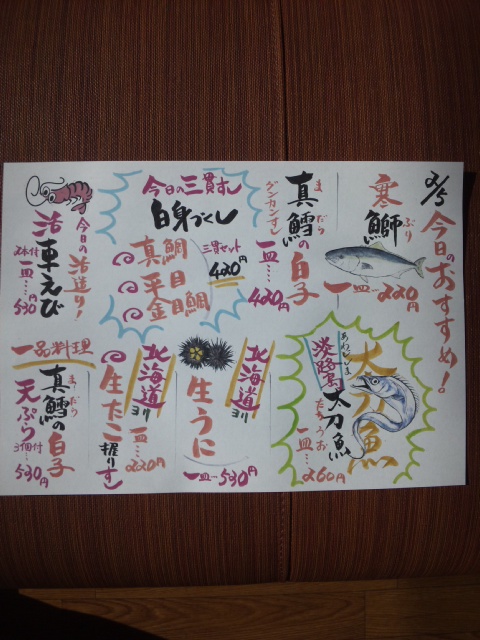 2/5
今日のおすすめ!
寒鰤
ぶり
一皿…220円
真鱈の白子
まだら
グンカンすし
一皿…420円
今日の三貫すし
白身づくし
真鯛
平目
金目鯛
三貫セット
420円
今日の活造り!
活車えび
2本付
一皿…530円
太刀魚
淡路島
あわじしま
太刀魚
たちうお
一皿…260円
北海道ヨリ
生うに
一皿…530円
北海道ヨリ
生たこ
握りすし
一皿…220円
一品料理
真鱈の白子
まだら
天ぷら
3個付
一皿…530円